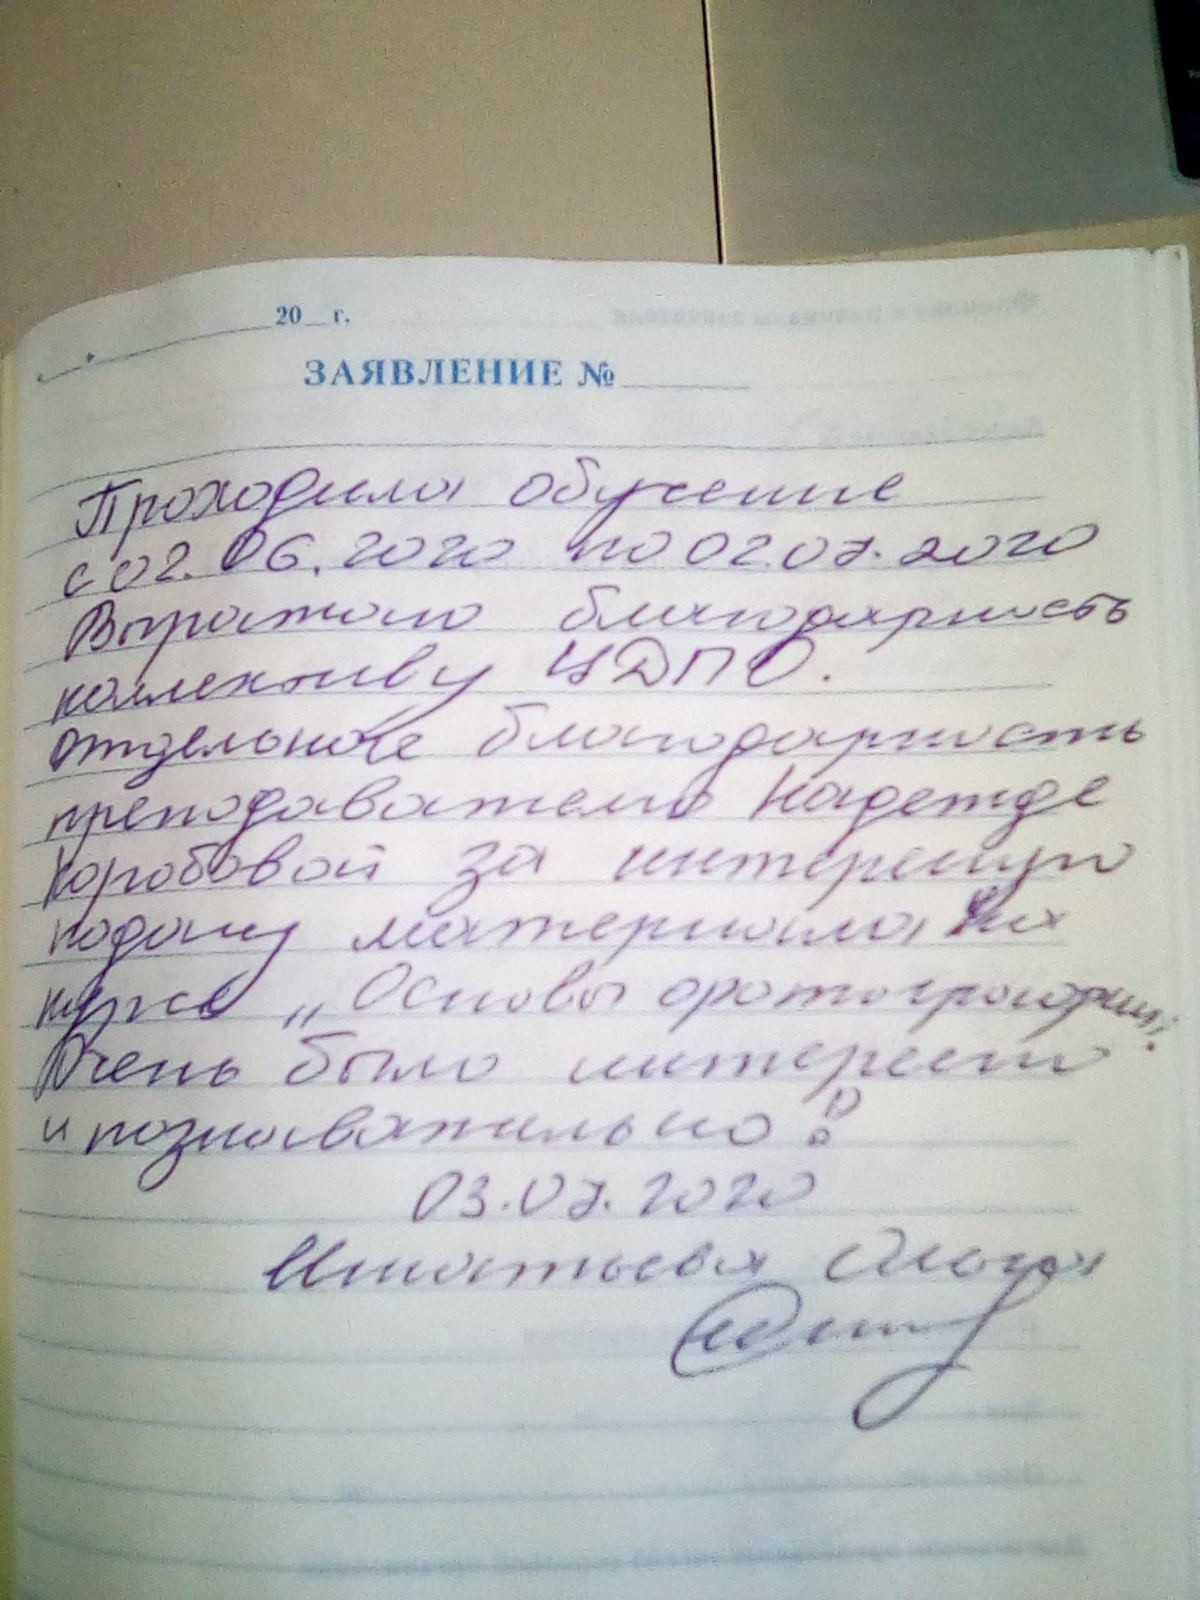 20__г.
ЗАЯВЛЕНИЕ №
Проходила обучение
с 02.06.2020 по 02.07.2020
Выражаю благодарность
коллективу ЦДПО.
Отдельное благодарность
преподавателю Надежде
Коробовой за интересную
подачу материала на
курсе „Основы фотографии".
Очень было интересно
и познавательно!
03.07.2020
Игнатьева Ольга